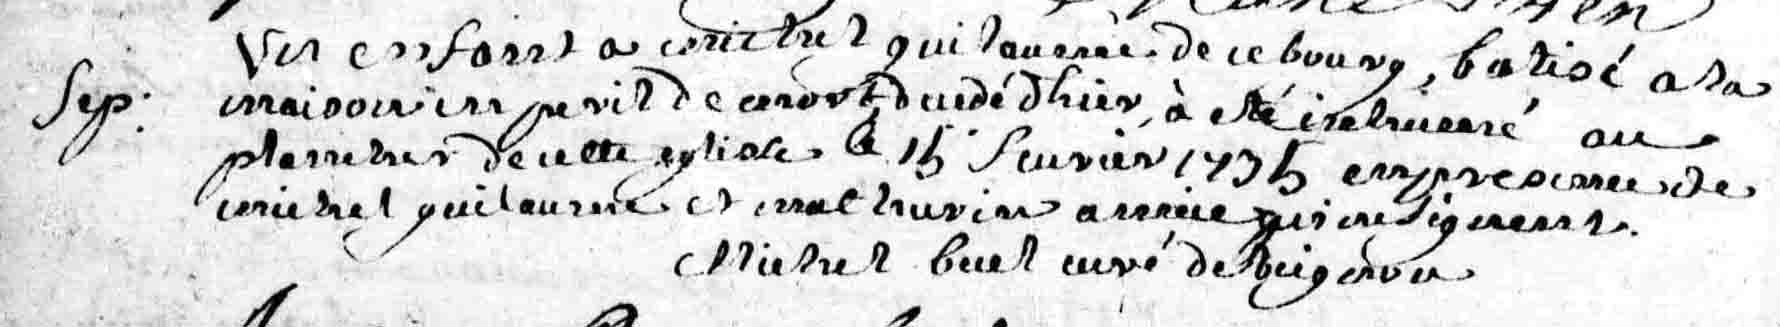 Un enfant a michel guilaume de ce bourg, batisé a la
Sep. maison en peril de mort, ducdé d'hier, à eté inhumé au
placitre de cette eglise le 15 feuvrier 1735 en presence de
michel guilaume et mathurin qui ne signent.
Michel buet curé de